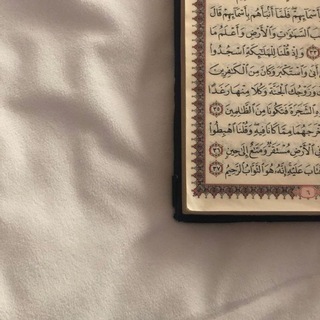 فَلَمَّآ أَنۢبَأَهُم بِأَسۡمَآئِهِمۡ قَالَ
ٱلسَّمَٰوَٰتِ وَٱلۡأَرۡضِ وَأَعۡلَمُ مَا
٣٣ وَإِذۡ قُلۡنَا لِلۡمَلَٰٓئِكَةِ ٱسۡجُدُواْ
وَٱسۡتَكۡبَرَ وَكَانَ مِنَ ٱلۡكَٰفِرِينَ
وَزَوۡجُكَ ٱلۡجَنَّةَ وَكُلَا مِنۡهَا رَغَدًا
ٱلشَّجَرَةَ فَتَكُونَا مِنَ ٱلظَّٰلِمِينَ ٣٥
مِمَّا كَانَا فِيهِۖ وَقُلۡنَا ٱهۡبِطُواْ
ٱلۡأَرۡضِ مُسۡتَقَرّٞ وَمَتَٰعٌ إِلَىٰ حِينٖ ٣٦
عَلَيۡهِۚ إِنَّهُۥ هُوَ ٱلتَّوَّابُ ٱلرَّحِيمُ ٣٧
٦